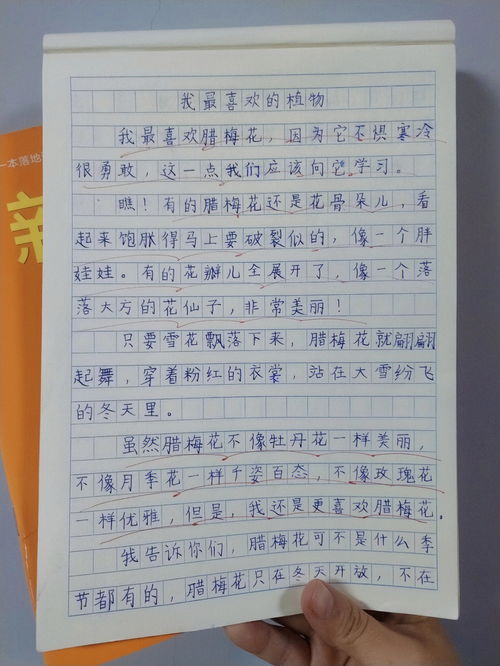 我最喜欢的植物
我最喜欢腊梅花，因为它不惧寒冷
很勇敢，这一点我们应该向它学习。
瞧！有的腊梅花还是花骨朵儿，看
起来饱胀得马上要破裂似的，像一个胖
娃娃。有的花瓣儿全展开了，像一个落
落大方的花仙子，非常美丽！
只要雪花飘落下来，腊梅花就翩翩
起舞，穿着粉红的衣裳，站在大雪纷飞
的冬天里。
虽然腊梅花不像牡丹花一样美丽，
不像月季花一样千姿百态，不像玫瑰花
一样优雅，但是，我还是更喜欢腊梅花。
我告诉你们，腊梅花可不是什么季
节都有的，腊梅花只在冬天开放，不在
一本落地
新